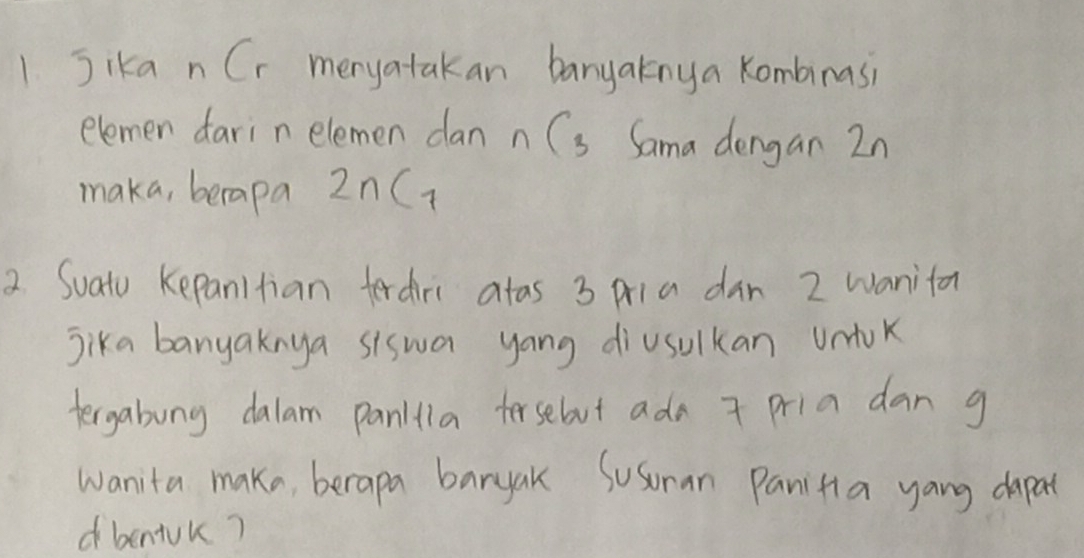 1. Jika n Cr menyatakan banyaknya Kombinasi
elemen dari n elemen dan n C3 Sama dengan 2n
maka, berapa 2n C7
2. Suatu Kepanitian terdiri atas 3 Pria dan 2 wanita
Jika banyaknya siswa yang diusulkan untuk
tergabung dalam panitia tersebut ada 7 pria dan 9
wanita maka, berapa banyak Susunan Panitia yang dapat
dibentuk?